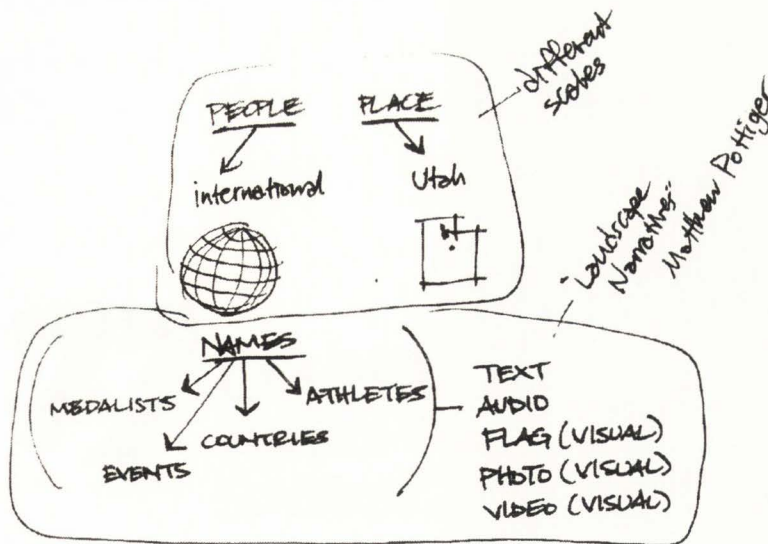 PEOPLE
PLACE
different
scales
international
Utah
Landscape
Narratives-
NAMES
MEDALISTS
ATHLETES
COUNTRIES
EVENTS
TEXT
AUDIO
FLAG (VISUAL)
PHOTO (VISUAL)
VIDEO (VISUAL)
Matthew Pottiger